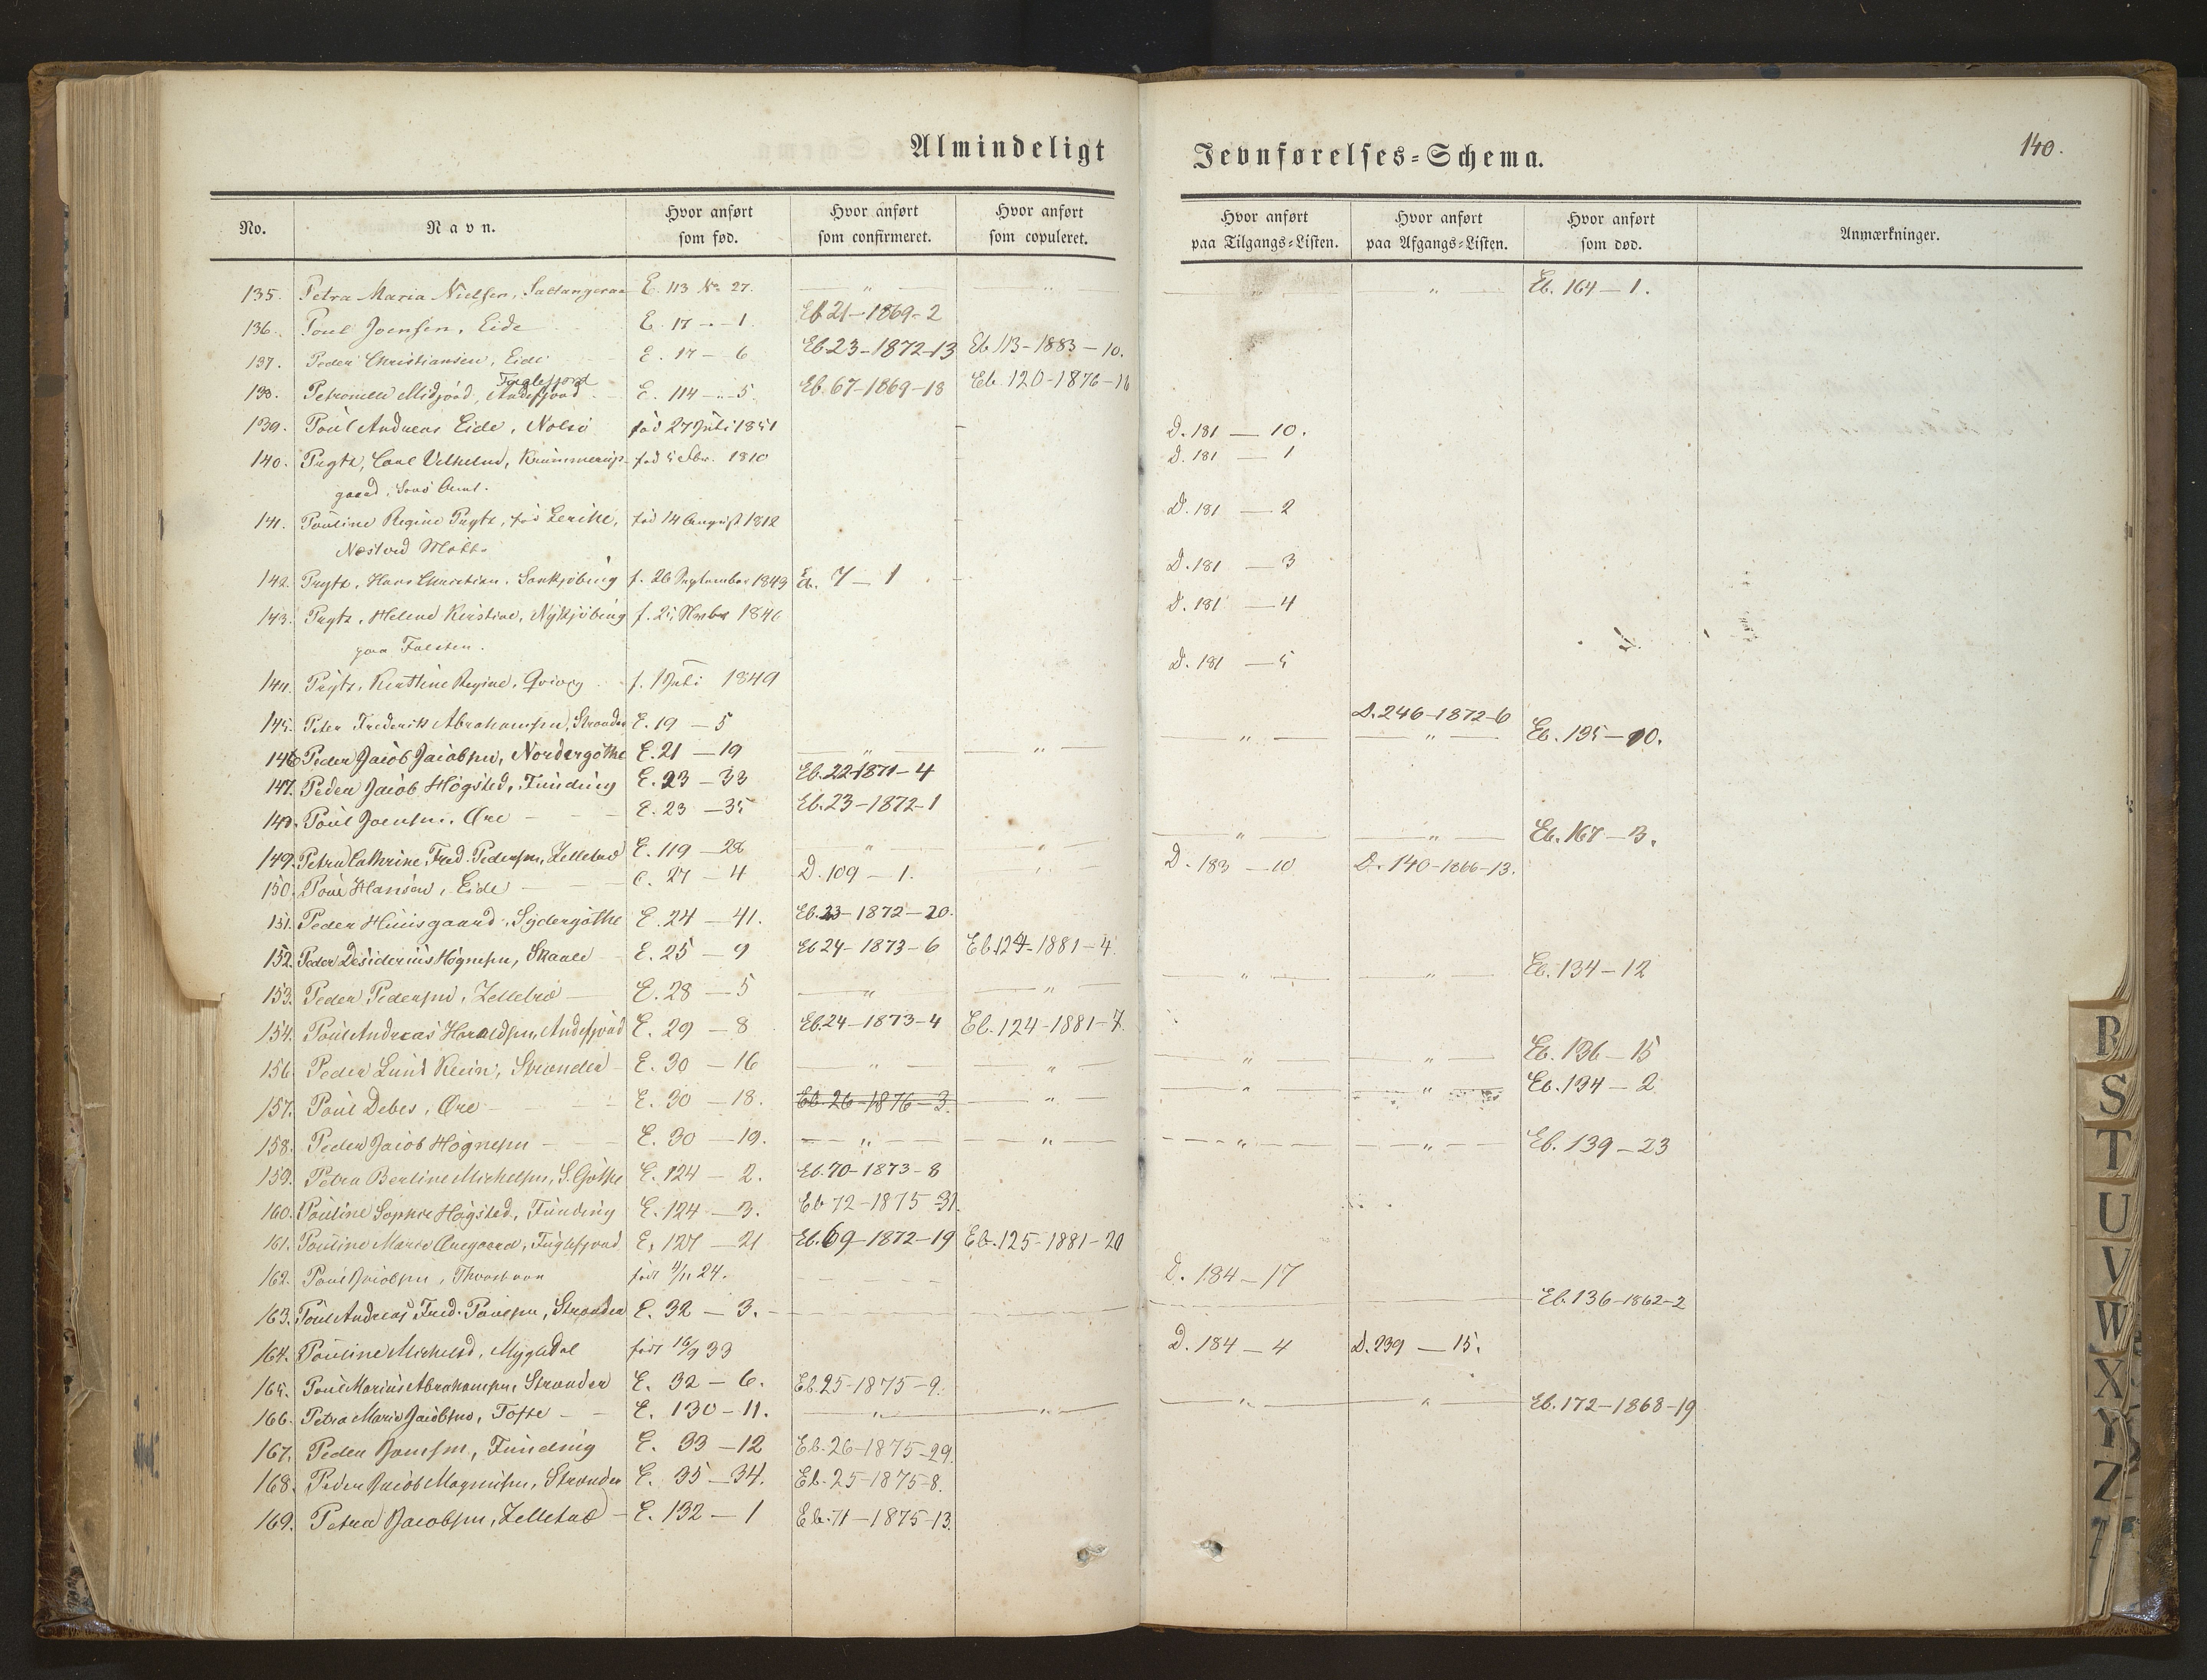 Almindeligt Jevnførelses=Schema. 140.
No. Navn. Hvor anført som fød. Hvor anført som confirmeret. Hvor anført som copuleret. Hvor anført paa Tilgangs=Listen. Hvor anført paa Afgangs=Listen. Hvor anført som død. Anmærkninger.
135. Petra Maria Nielsen, E. 113 No 27. — " — " — " — Eb. 164 — 1.
136. Poul Joensen, Eide E. 17 — 1 Eb 21 — 1869 - 2
137. Peder Christiansen, Eide E. 17 — 6 Eb 23 - 1872 - 13 Eb 113 - 1883 — 10.
Fuglefjord
138. Petronelle Midjord, Andefjord E. 114 — 5 Eb. 67 - 1869 - 18 Eb. 120 - 1876 - 16
139. Poul Andreas Eide, Nolsö fød 27 Juli 1851 D. 181 — 10.
140. Prytz, Carl Vilhelm, fød 1810 D. 181 — 1
gaard, Sorö Amt.
141. Pauline Regine Prytz, fød fød 14 August 1812 D. 181 — 2
Næstved
142. Prytz, Hans Christian, f. 26 September 1843 7 — 1 D. 181 — 3
143. Prytz, Helene Kirstine, Nykjöbing f. 25 1846 D. 181 — 4
paa Falster.
144. Prytz, Kirstine Regine, f. 1 Juli 1849 D. 181 — 5
145. Peter Frederik Abrahamsen, Strander E. 19 — 5 D. 246 - 1872 - 6
146 Peder Jacob Jacobsen, Nordergöthe E. 21 — 19 — " — " — " — " — Eb. 135 — 10.
147. Peder Jacob Högsted, Funding E. 23 — 33 Eb. 22 - 1871 - 4
148. Poul Joensen, Öre E. 23 — 35 Eb. 23 - 1872 - 1
149. Petra Cathrine Fred. Pedersen, Zelletræ E. 119 — 28 — " — " — " — " — Eb. 167 — 3.
150. Poul Hansen, Eide E. 27 — 4 D. 109 — 1. D. 183 — 10 D. 140 - 1866 - 13.
151. Peder Huusgaard, Sydergöthe E. 24 — 41. Eb. 23 - 1872 — 20.
152. Peder Desiderius Högnesen, Skaale E. 25 — 9 Eb 24 - 1873 - 6 Eb. 124 - 1881 - 4
153. Peder Pedersen, Zelletræ E. 28 — 5 — " — " — " — " — Eb. 134 — 12
154. Poul Andreas Haraldsen, Andefjord E. 29 — 8 Eb. 24 - 1873 - 4 Eb. 124 - 1881 - 7.
156. Peder Lund Strander E. 30 — 16 — " — " — " — " — Eb. 136 — 15
157. Poul Debes, Öre E. 30 — 18. Eb. 26 - 1876 - 3. — " — " — " — Eb. 134 — 2
158. Peder Jacob Högnesen E. 30 — 19. — " — " — " — " — Eb. 139 — 23
159. Petra Berline Michelsen, S. Göthe E. 124 — 2. Eb. 70 - 1873 - 8
160. Pouline Sophie Högsted, Funding E. 124 — 3. Eb 72 - 1875 - 31.
161. Pouline Marie Öregaard, Fuglefjord E. 127 — 21 Eb. 69 - 1872 - 19 Eb. 125 - 1881 - 20
162. Poul Jacobsen, Thorshavn født 4/11 24. D. 184 — 17
163. Poul Andreas Fred. Poulsen, Strander E. 32 — 3. — Eb. 136 - 1862 - 2
164. Pouline Michelsd, Mygledal født 16/9 33 D. 184 — 4 D. 239 — 15.
165. Poul Marius Abrahamsen, Strander E. 32 — 6. Eb. 25 - 1875 - 9.
166. Petra Marie Jacobsen, Tofte E. 130 — 11. — " — " — " — " — Eb. 172 - 1868 - 19
167. Peder Joensen, Funding E. 33 — 12 Eb. 26 - 1875 - 29.
168. Peder Jacob Magnusen, Strander E. 35 — 34. Eb. 25 - 1875 - 8.
169. Petra Jacobsen, Zelletræ E. 132 — 1 Eb. 71 - 1875 - 13.
R
S
T
U
V
W
X
Y
Z